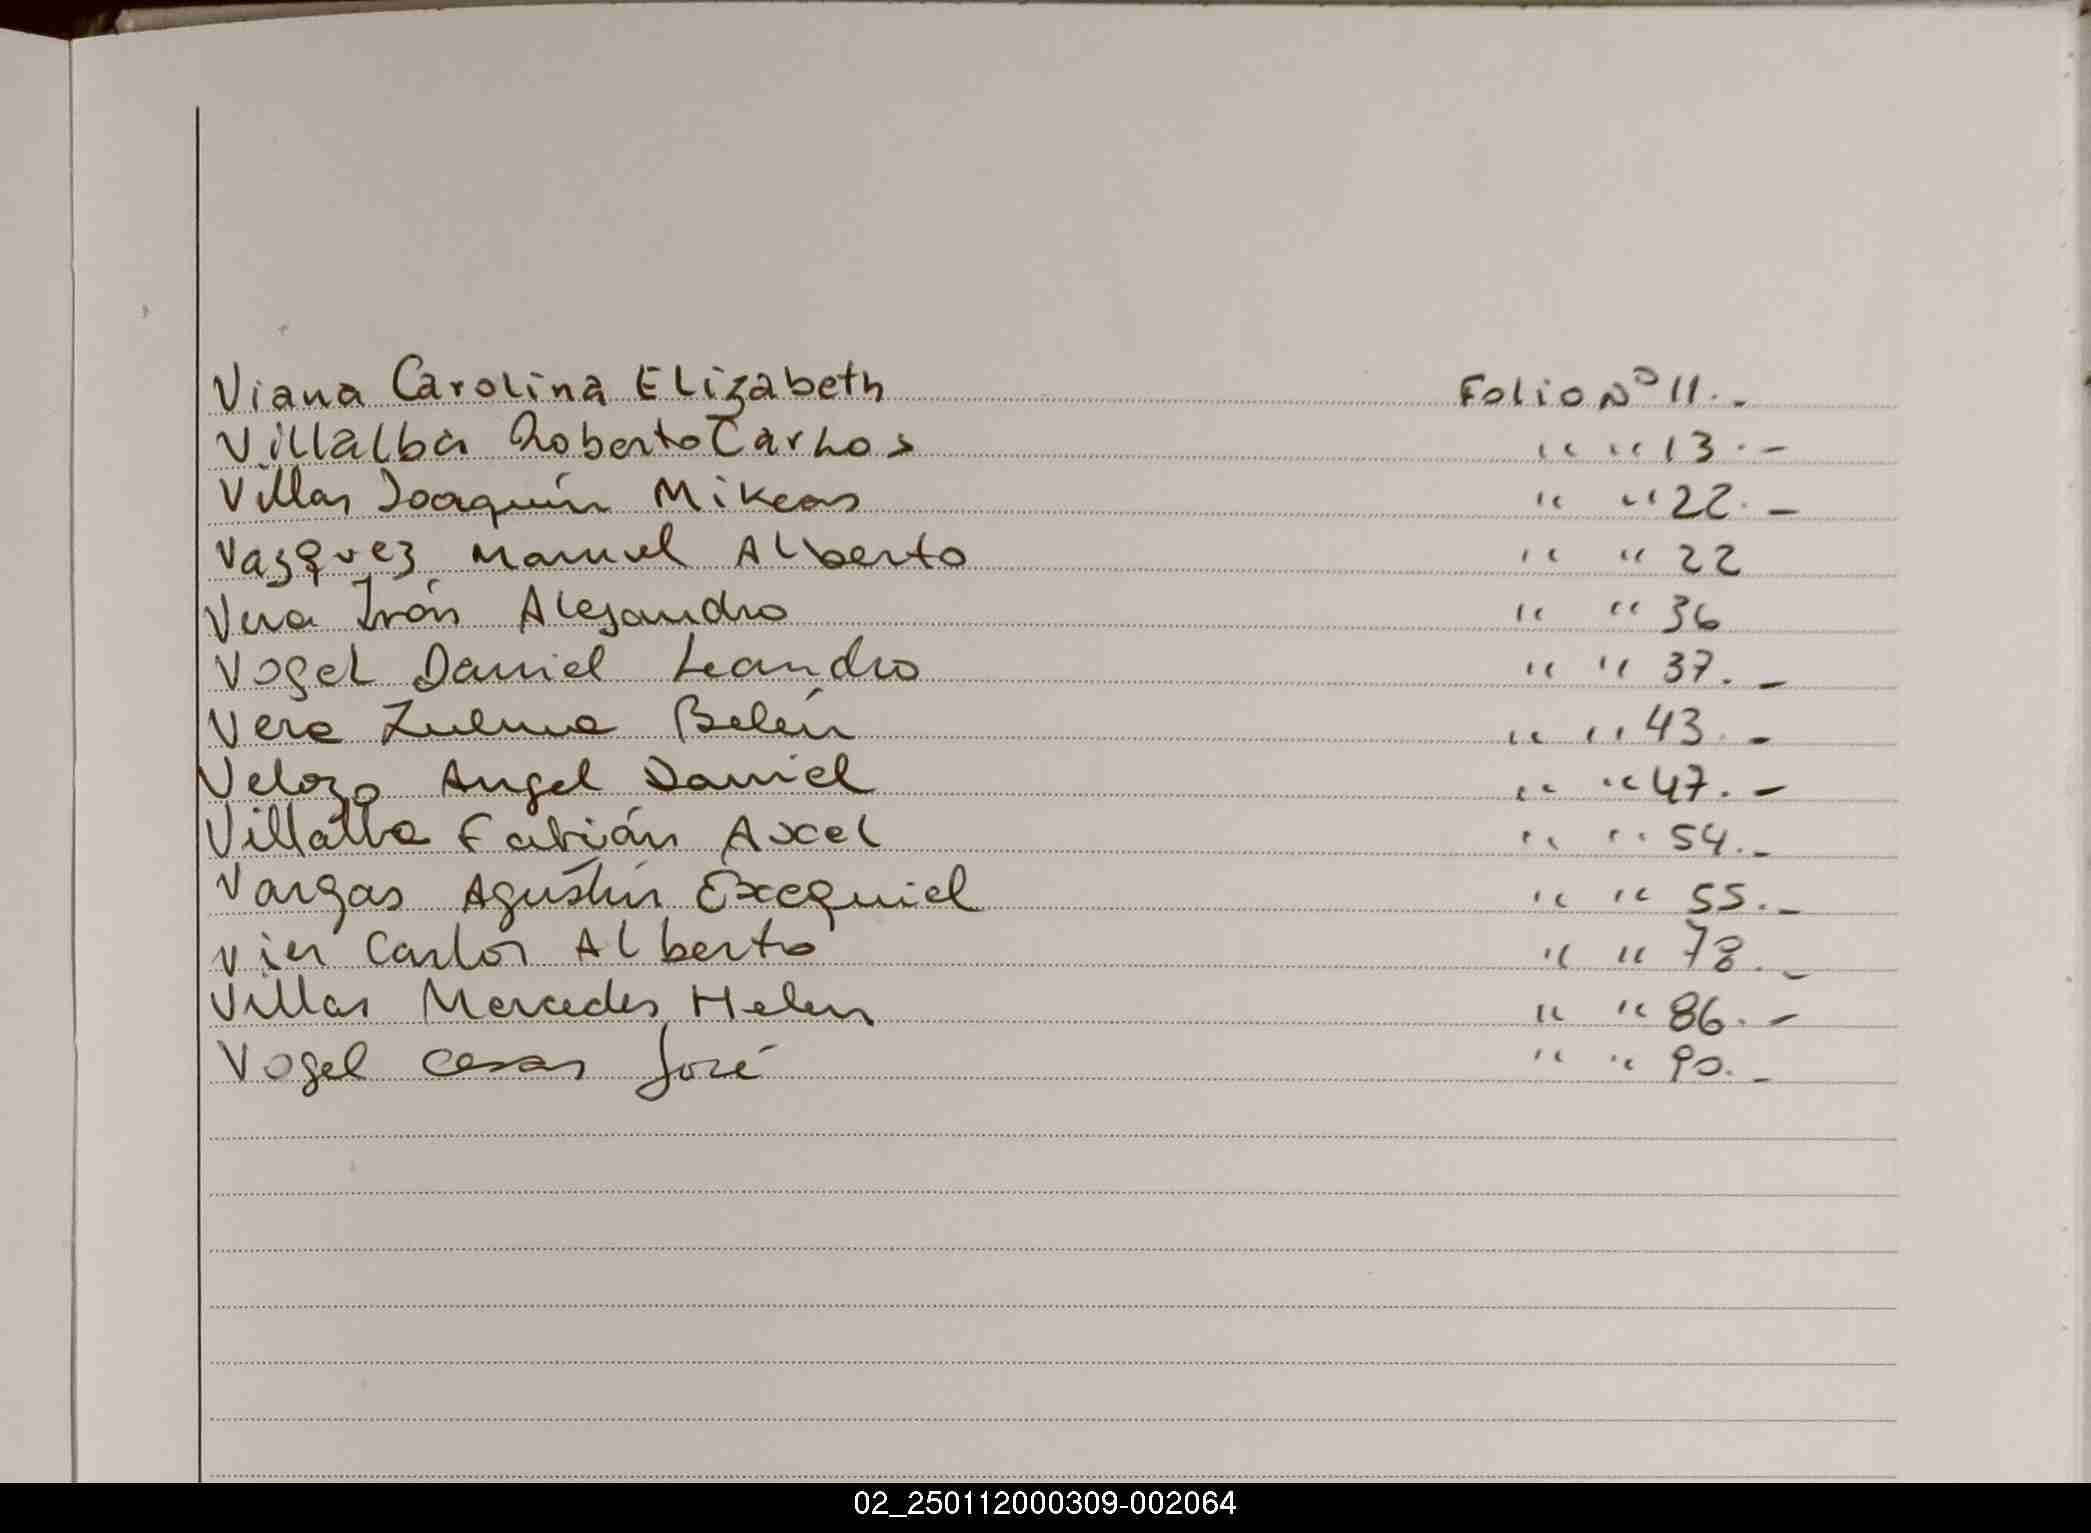 Viana Carolina Elizabeth Folio Nº 11.-
Villalba Roberto Carlos " " 13.-
Villas Joaquín Mikeas " " 22.-
Vazquez Manuel Alberto " " 22
Vera Iván Alejandro " " 36
Vogel Daniel Leandro " " 37.-
Vera Zulma Belén " " 43.-
Velozo Angel Daniel " " 47.-
Villalba Fabián Axel " " 54.-
Vargas Agustín Exequiel " " 55.-
Vier Carlos Alberto " " 78.-
Villas Mercedes Helen " " 86.-
Vogel Cesar José " " 90.-
02_250112000309-002064